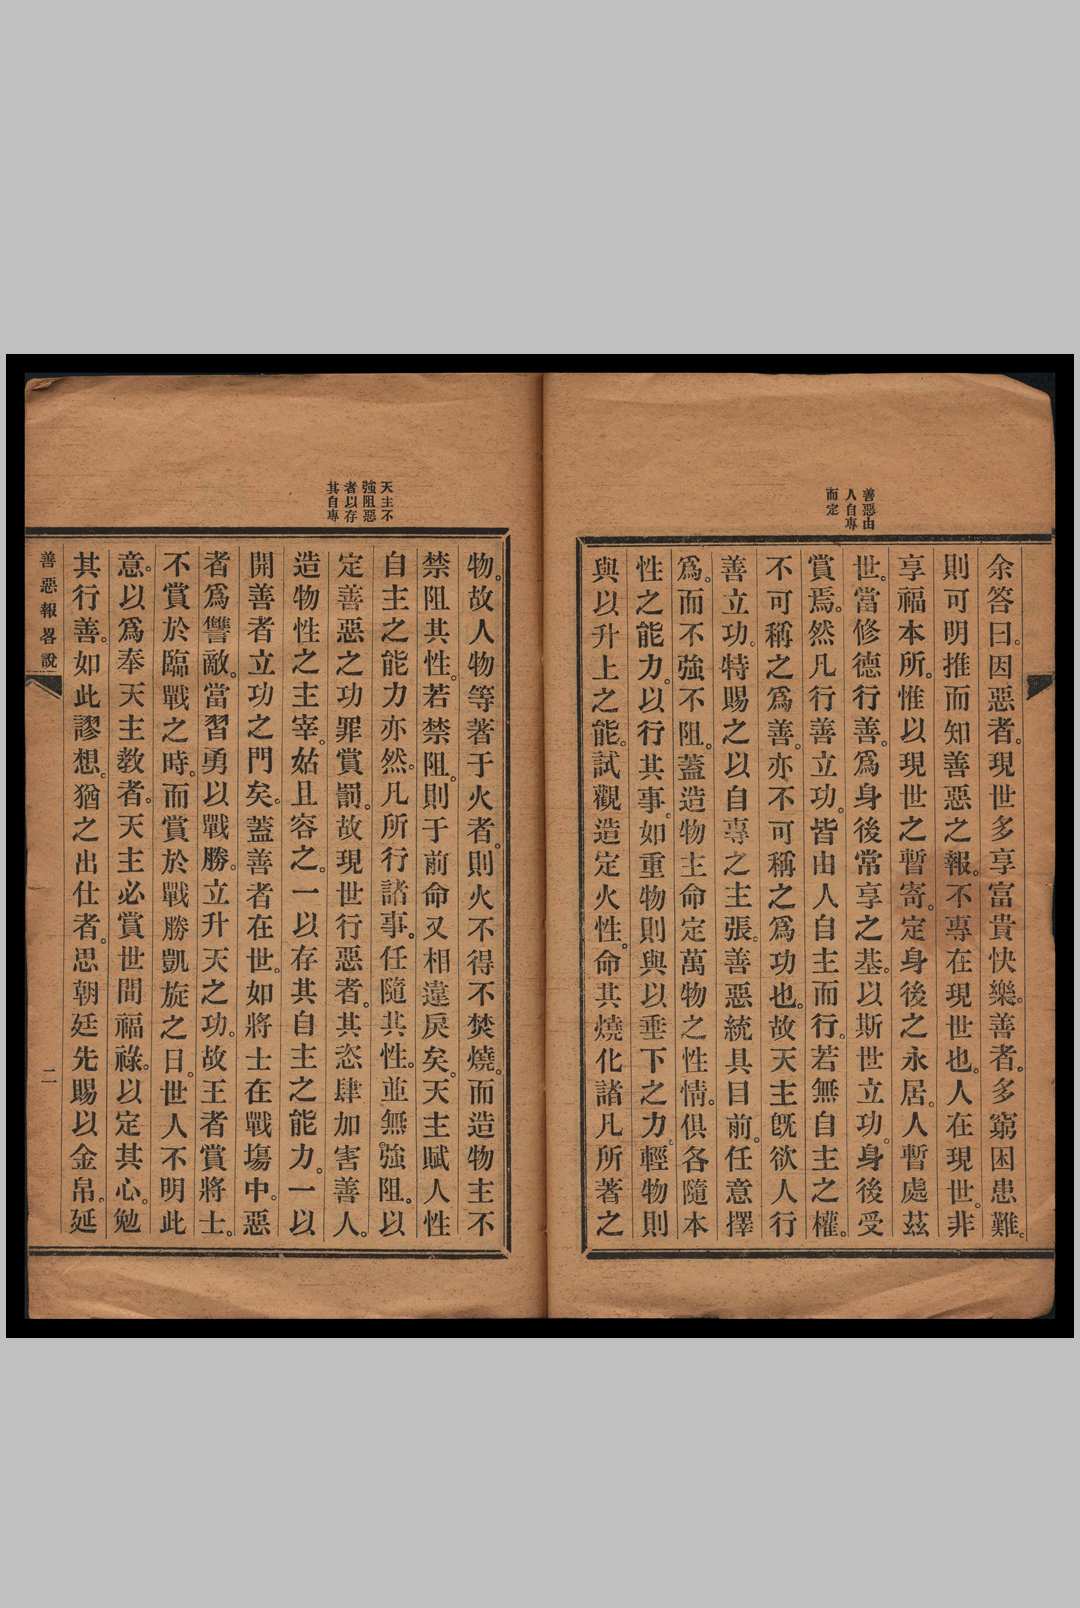 善惡由
人自專
而定
余答曰。因惡者。現世多享富貴快樂。善者。多窮困患難。
則可明推而知善惡之報。不專在現世也。人在現世。非
享福本所。惟以現世之暫寄。定身後之永居。人暫處茲
世。當修德行善。爲身後常享之基。以斯世立功。身後受
賞焉。然凡行善立功。皆由人自主而行。若無自主之權。
不可稱之爲善。亦不可稱之爲功也。故天主旣欲人行
善立功。特賜之以自專之主張。善惡統具目前。任意擇
爲。而不強不阻。蓋造物主命定萬物之性情。俱各隨本
性之能力。以行其事。如重物則與以垂下之力。輕物則
與以升上之能。試觀造定火性。命其燒化諸凡所著之
天主不
強阻惡
者以存
其自專
物。故人物等著于火者。則火不得不焚燒。而造物主不
禁阻其性。若禁阻。則于前命又相違戾矣。天主賦人性
自主之能力亦然。凡所行諸事。任隨其性。並無強阻。以
定善惡之功罪賞罰。故現世行惡者。其恣肆加害善人。
造物性之主宰。姑且容之。一以存其自主之能力。一以
開善者立功之門矣。蓋善者在世。如將士在戰塲中。惡
者爲讐敵。當習勇以戰勝。立升天之功。故王者賞將士。
不賞於臨戰之時。而賞於戰勝凱旋之日。世人不明此
意。以爲奉天主教者。天主必賞世間福祿。以定其心。勉
其行善。如此謬想。猶之出仕者。思朝廷先賜以金帛。延
善惡報畧說
二